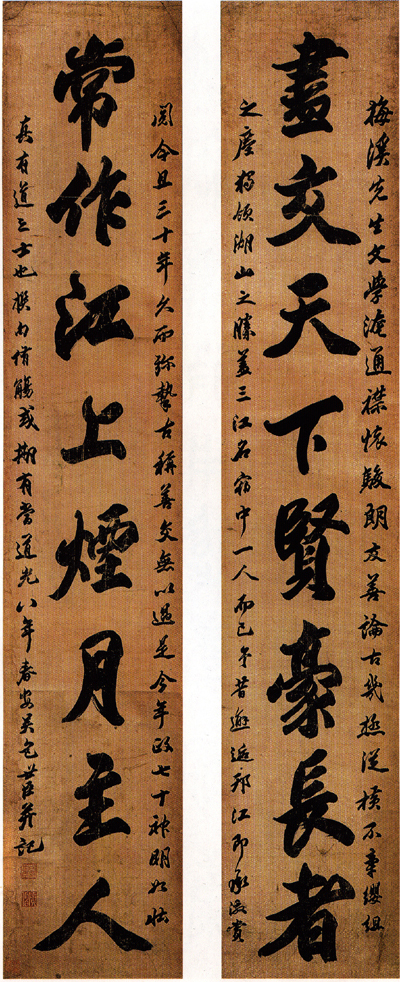 梅溪先生文學淹通襟懷駿朗友善論古幾極從橫不牽纓組
盡交天下賢豪長者
之塵獨領湖山之勝蓋三江名宿中一人而已昔邂逅邗江即承激賞
閱今且三十年久而弥摯古稱善交無以過是今年政七十神明如
常作江上煙月主人
真有道之士也撰句侑觴或期有當道光八年春安吳包世臣并記